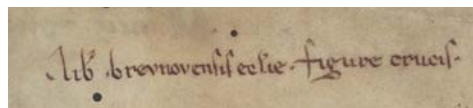 lib̄ .brevnovensis eclie. figure crucis.